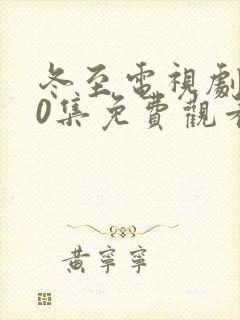 冬至電視劇
0集免費觀看
黃寧寧